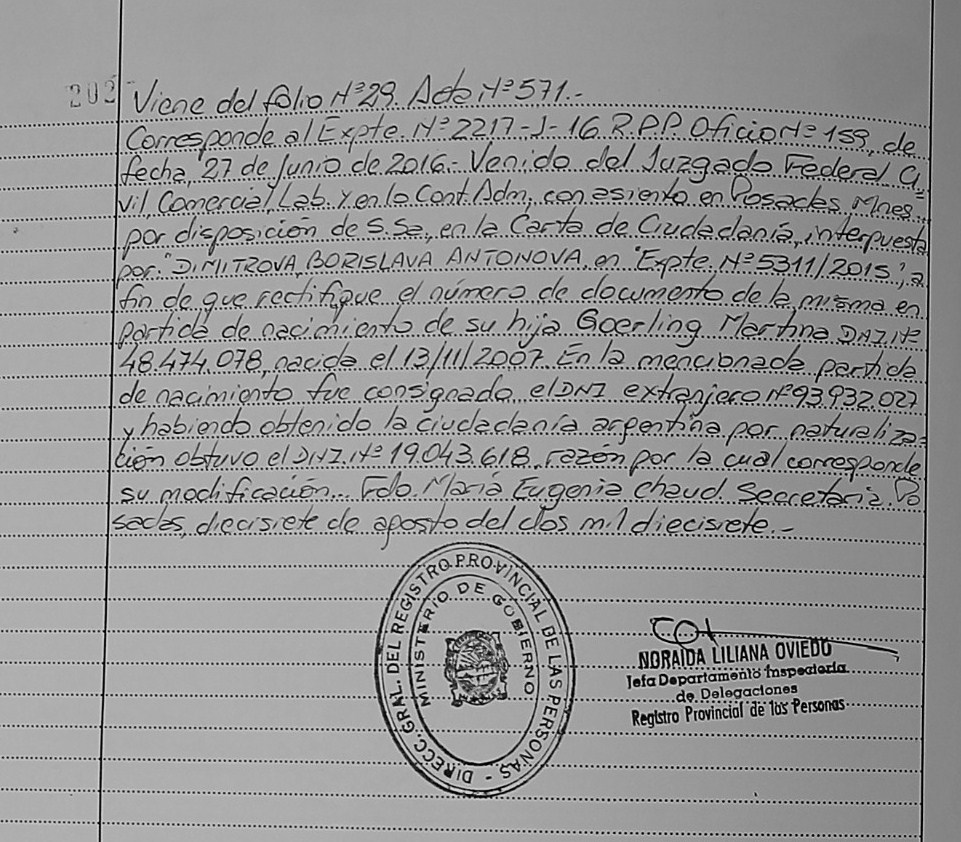 202
Viene del folio Nº 29. Acta Nº 571.-
Corresponde al Expte. Nº 2217-J-16. R.P.P. Oficio Nº 159, de
fecha, 27 de Junio de 2016.- Venido del Juzgado Federal Ci-
vil, Comercial, Lab. y en lo Cont. Adm, con asiento en Posadas, Mnes.,
por disposición de S.Sa., en la Carta de Ciudadanía, interpuesta
por: "DIMITROVA, BORISLAVA ANTONOVA, en "Expte. Nº 5311/2015", a
fin de que rectifique el número de documento de la misma en
partida de nacimiento de su hija Goerling Martina DNI. Nº
48.474.078, nacida el 13/11/2007. En la mencionada partida
de nacimiento fue consignado el DNI extranjero Nº 93.932.027
y habiendo obtenido la ciudadanía argentina por naturaliza-
ción obtuvo el DNI. Nº 19.043.618. razón por la cual corresponde
su modificación... Fdo. María Eugenia Chaud. Secretaria. Po
sadas, diecisiete de agosto del dos mil diecisiete.-
DIRECC. GRAL. DEL REGISTRO PROVINCIAL DE LAS PERSONAS -
MINISTERIO DE GOBIERNO
NORAIDA LILIANA OVIEDO
Jefa Departamento Inspectoria
de Delegaciones
Registro Provincial de las Personas